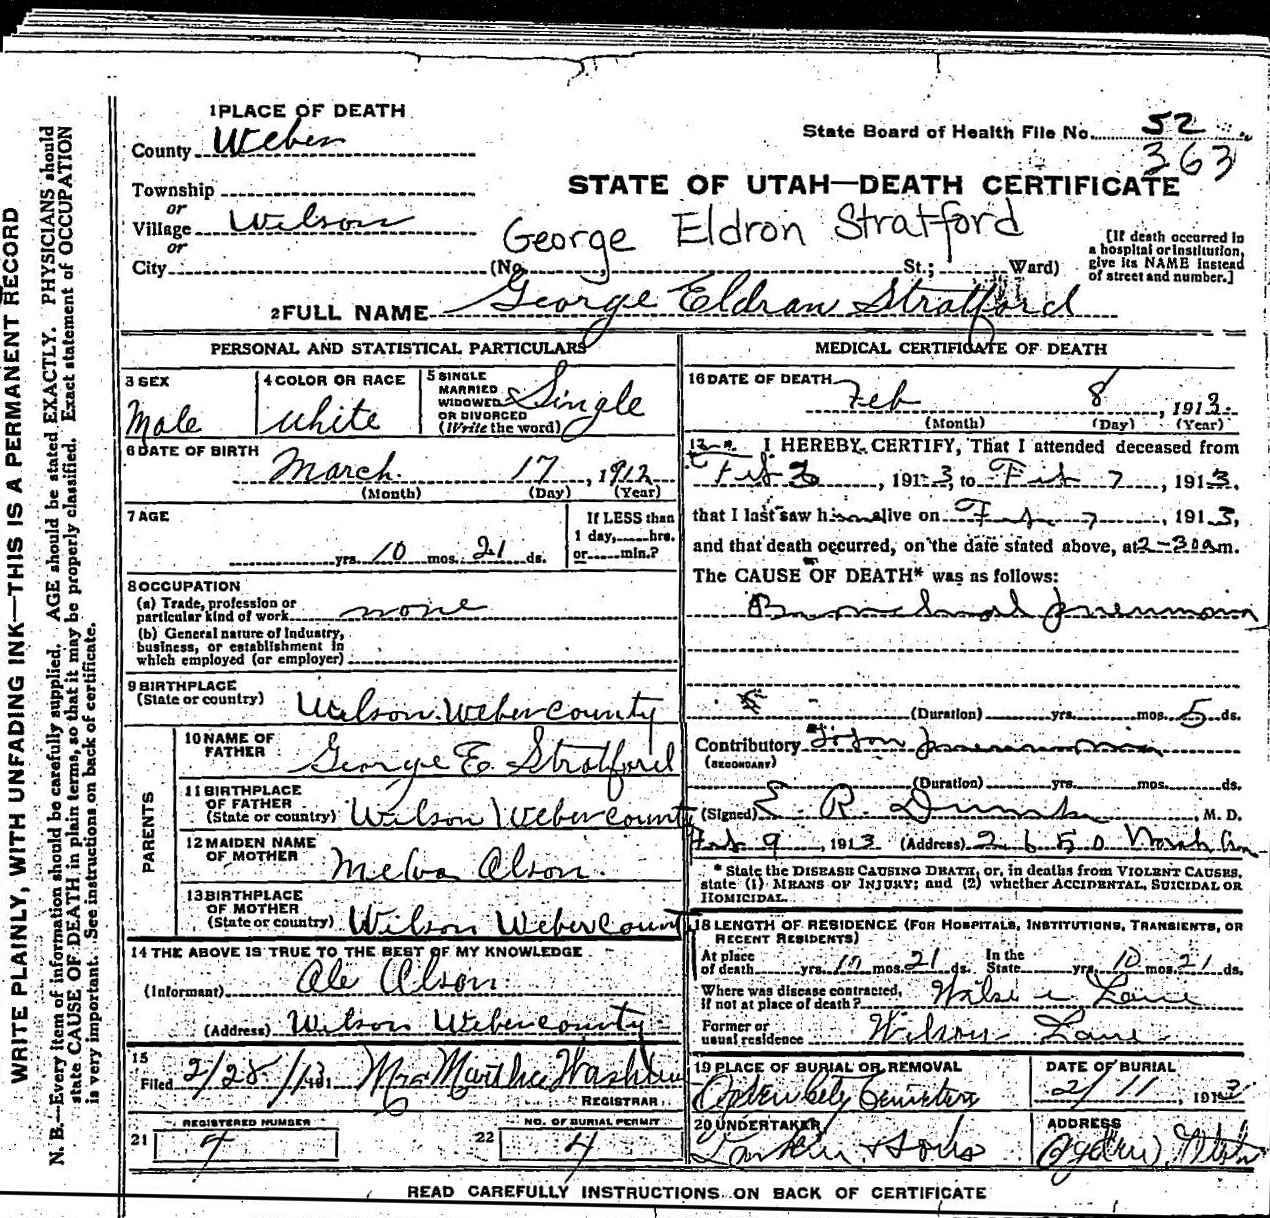 WRITE PLAINLY, WITH UNFADING INK—THIS IS A PERMANENT RECORD
N. B.—Every item of information should be carefully supplied. AGE should be stated EXACTLY. PHYSICIANS should
state CAUSE OF DEATH in plain terms, so that it may be properly classified. Exact statement of OCCUPATION
is very important. See instructions on back of certificate.
1 PLACE OF DEATH
County Weber
State Board of Health File No. 52
363
Township
or
Village Wilson
or
City
STATE OF UTAH—DEATH CERTIFICATE
George Eldron Stratford
(No. St.; Ward)
[If death occurred in
a hospital or institution,
give its NAME instead
of street and number.]
2 FULL NAME George Eldran Stratford
PERSONAL AND STATISTICAL PARTICULARS
3 SEX
Male
4 COLOR OR RACE
White
5 SINGLE
MARRIED
WIDOWED
OR DIVORCED
(Write the word)
Single
6 DATE OF BIRTH
March 17, 1912
(Month) (Day) (Year)
7 AGE
yrs. 10 mos. 21 ds.
If LESS than
1 day, hrs.
or min.?
8 OCCUPATION
(a) Trade, profession or
particular kind of work none
(b) General nature of Industry,
business, or establishment in
which employed (or employer)
9 BIRTHPLACE
(State or country) Wilson Weber county
PARENTS
10 NAME OF
FATHER George E. Stratford
11 BIRTHPLACE
OF FATHER
(State or country) Wilson Weber county
12 MAIDEN NAME
OF MOTHER Melva Olson.
13 BIRTHPLACE
OF MOTHER
(State or country) Wilson Weber county
14 THE ABOVE IS TRUE TO THE BEST OF MY KNOWLEDGE
(Informant) Ole Olson.
(Address) Wilson Weber county
15
Filed 2/28/13 191 Mrs Martha
REGISTRAR
REGISTERED NUMBER
21
NO. OF BURIAL PERMIT
22 4
MEDICAL CERTIFICATE OF DEATH
16 DATE OF DEATH
Feb 8, 1913
(Month) (Day) (Year)
I HEREBY CERTIFY, That I attended deceased from
Feb, 1913, to Feb 7, 1913,
that I last saw him alive on Feb 7, 1913,
and that death occurred, on the date stated above, at 2-30 am.
The CAUSE OF DEATH* was as follows:
Bronchial pneumonia
(Duration) yrs. mos. 5 ds.
Contributory pneumonia
(SECONDARY)
(Duration) yrs. mos. ds.
(Signed) E. R. M. D.
Feb 9, 1913 (Address) 2650
* State the DISEASE CAUSING DEATH, or, in deaths from VIOLENT CAUSES,
state (1) MEANS OF INJURY; and (2) whether ACCIDENTAL, SUICIDAL OR
HOMICIDAL.
18 LENGTH OF RESIDENCE (FOR HOSPITALS, INSTITUTIONS, TRANSIENTS, OR
RECENT RESIDENTS)
At place
of death yrs. 10 mos. 21 ds.
In the
State yrs. 10 mos. 21 ds.
Where was disease contracted,
if not at place of death? Lane
Former or
usual residence Wilson Lane
19 PLACE OF BURIAL OR REMOVAL
Ogden City Cemetery
DATE OF BURIAL
2/11, 1913
20 UNDERTAKER
Larkin & Sons
ADDRESS
Ogden, Utah
READ CAREFULLY INSTRUCTIONS ON BACK OF CERTIFICATE